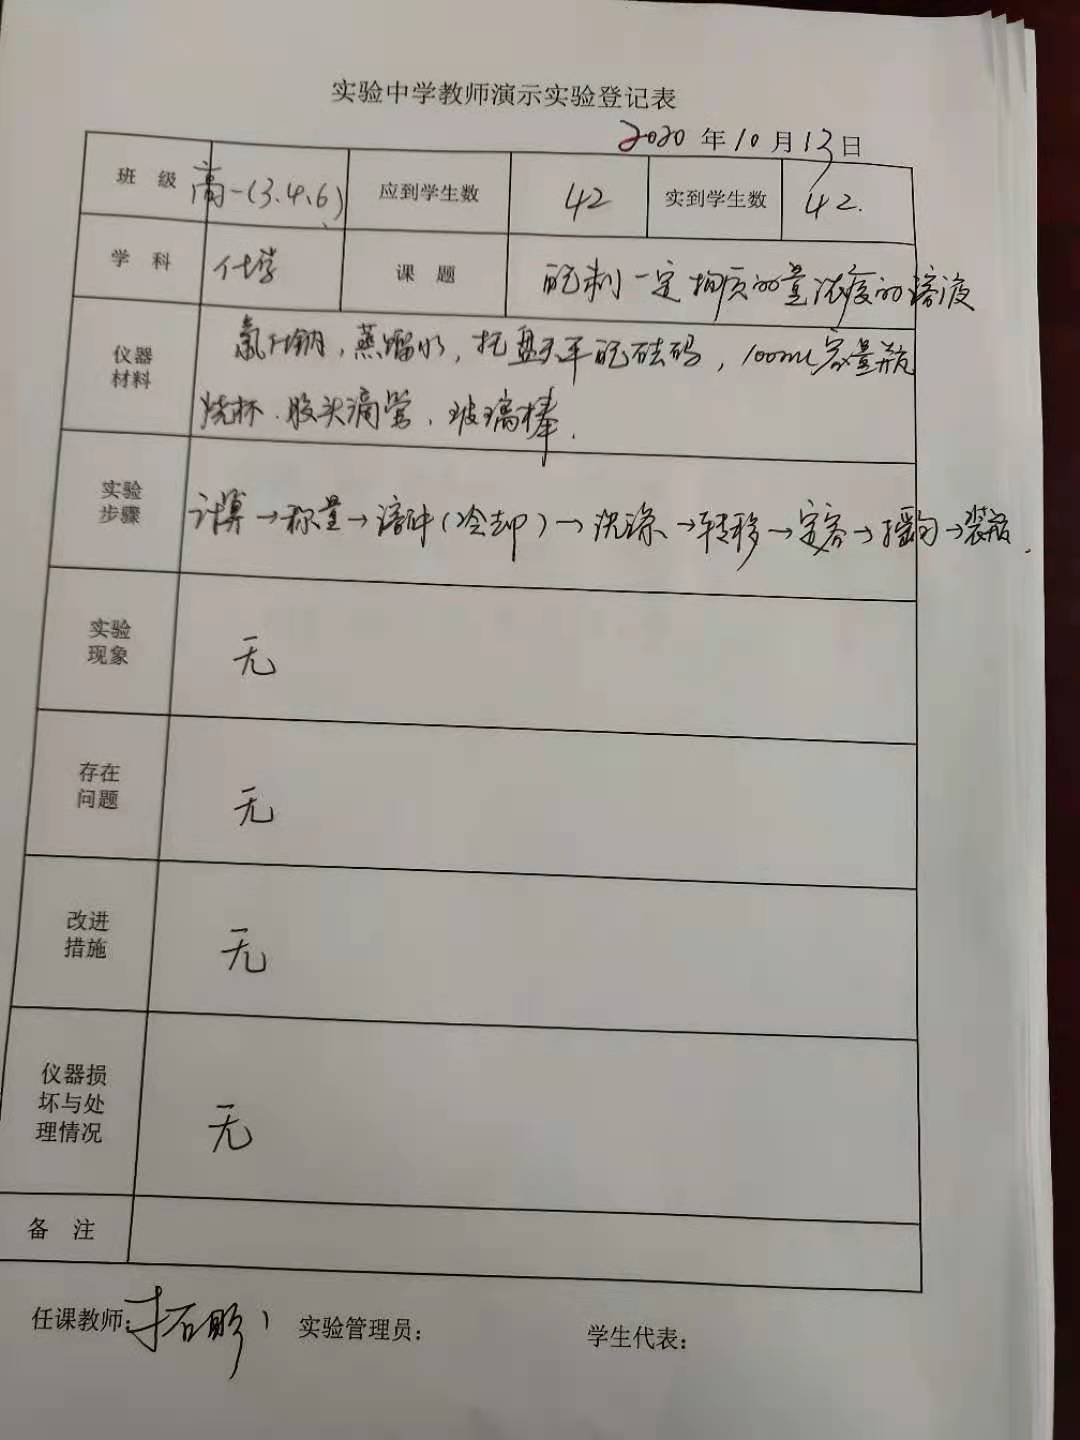 实验中学教师演示实验登记表
2020 年 10 月 13 日
班 级 高一(3.4.6) 应到学生数 42 实到学生数 42.
学 科 化学 课 题 配制一定物质的量浓度的溶液
仪器 氯化钠，蒸馏水，托盘天平配砝码，100mL容量瓶
材料 烧杯、胶头滴管、玻璃棒.
实验
步骤 计算→称量→溶解(冷却)→洗涤→转移→定容→摇匀→装瓶.
实验
现象 无
存在
问题 无
改进
措施 无
仪器损
坏与处
理情况 无
备 注
任课教师: 实验管理员: 学生代表: